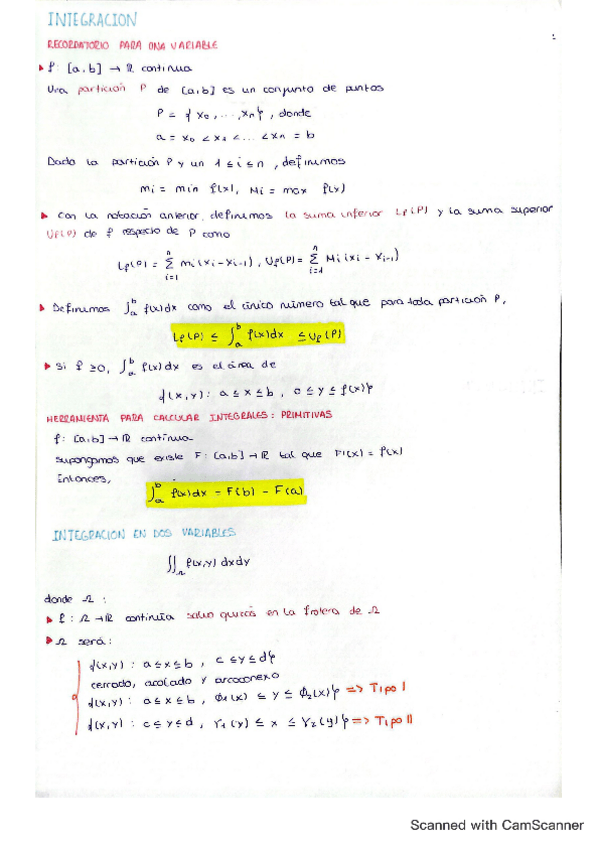 INTEGRACION
RECORDATORIO PARA UNA VARIABLE
▶ f: [a,b] → ℝ continua
Una partición P de [a,b] es un conjunto de puntos
P = { x₀, ..., xₙ }, donde
a = x₀ < x₁ < ... < xₙ = b
Dado la partición P y un 1 ≤ i ≤ n, definimos
mi = min f(x), Mi = max f(x)
▶ Con la notación anterior, definimos la suma inferior Lf(P) y la suma superior
Uf(P) de f respecto de P como
Lf(P) = Σ_{i=1}^{n} mi(xi - xi-1), Uf(P) = Σ_{i=1}^{n} Mi(xi - xi-1)
▶ Definimos ∫_a^b f(x)dx como el único número tal que para toda partición P,
Lf(P) ≤ ∫_a^b f(x)dx ≤ Uf(P)
▶ Si f ≥ 0, ∫_a^b f(x)dx es el área de
{(x,y): a ≤ x ≤ b, 0 ≤ y ≤ f(x)}
HERRAMIENTA PARA CALCULAR INTEGRALES: PRIMITIVAS
f: [a,b] → ℝ continua
supongamos que existe F: [a,b] → ℝ tal que F'(x) = f(x)
Entonces,
∫_a^b f(x)dx = F(b) - F(a)
INTEGRACION EN DOS VARIABLES
∬_Ω f(x,y) dxdy
donde Ω :
▶ f: Ω → ℝ continua salvo quizás en la frotera de Ω
▶ Ω será:
{(x,y): a ≤ x ≤ b, c ≤ y ≤ d}
cerrado, acotado y arcoconexo
{(x,y): a ≤ x ≤ b, ϕ₁(x) ≤ y ≤ ϕ₂(x)} => Tipo I
{(x,y): c ≤ y ≤ d, γ₁(y) ≤ x ≤ γ₂(y)} => Tipo II
Scanned with CamScanner